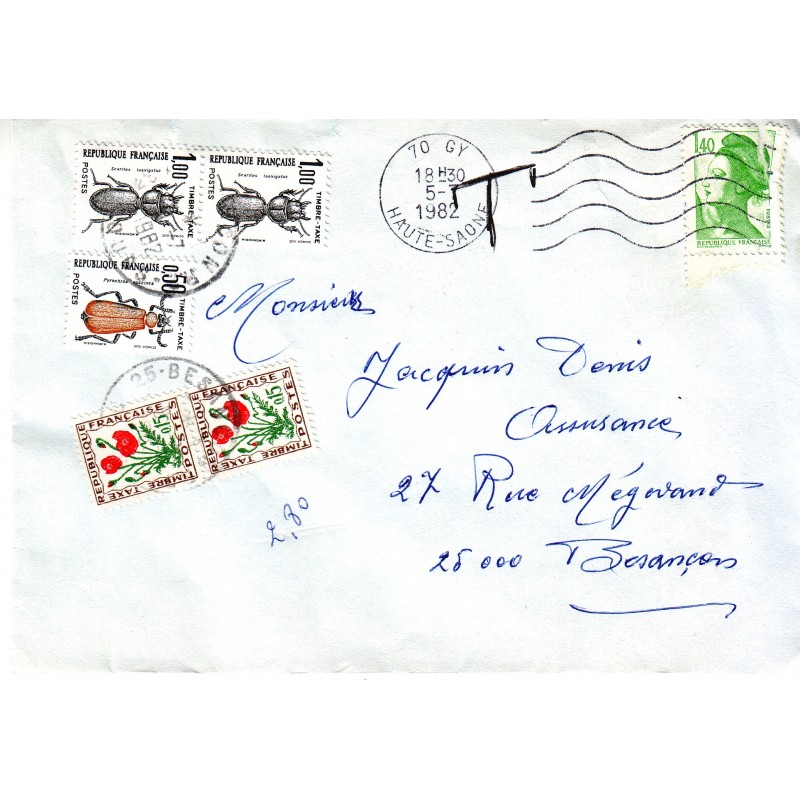 RÉPUBLIQUE FRANÇAISE 1,00
Scarites laevigatus
POSTES
TIMBRE-TAXE
RÉPUBLIQUE FRANÇAISE 1,00
Scarites laevigatus
POSTES
TIMBRE-TAXE
70 GY
18 H30
5-
1982
HAUTE-SAONE
T
1,40
RÉPUBLIQUE FRANÇAISE
RÉPUBLIQUE FRANÇAISE 0,50
Pyrochroa coccinea
POSTES
TIMBRE-TAXE
Monsieur
Jacquin Denis
Assurance
27 Rue Mégevand
25 000 Besançon
25-BESAN
RÉPUBLIQUE FRANÇAISE
0,15
POSTES
TIMBRE TAXE
RÉPUBLIQUE FRANÇAISE
0,15
POSTES
TIMBRE TAXE
2,80